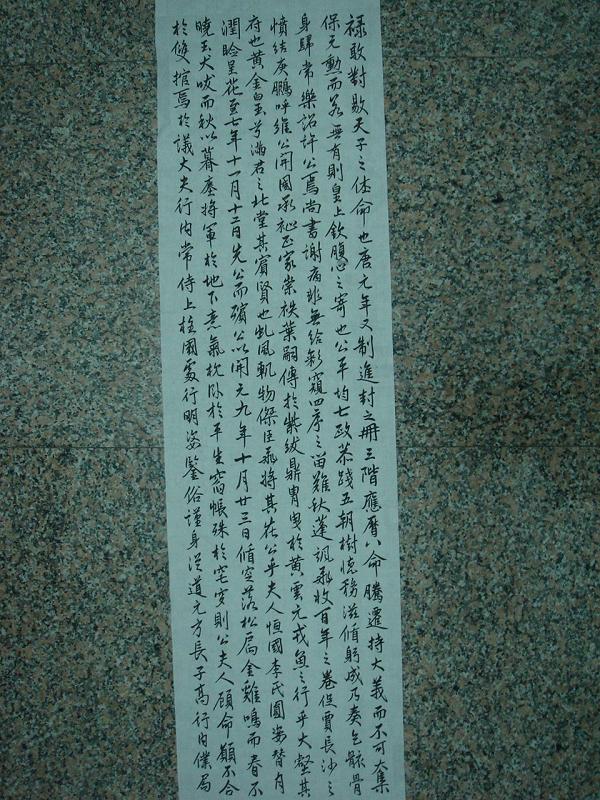 禄敢對敭天子之休命也唐元年又制進封之冊三階應曆八命騰遷持大義而不可大集
保元勳而若無有則皇上欽腹心之寄也公平均七政恭踐五朝樹德務滋傾躬成乃奏乞骸骨
身歸常樂詔許公焉尚書謝病非無給彩窺四序之留難秋蓬颯飛收百年之卷促賈長沙之
憤結庚鵬呼維公開國承祉正家崇秩葉嗣傳於紫紱鼎胄曳於黃雲元戎魚之行乎大壑其
府也黃金白玉兮滿君之北堂其賓賢也虬風軌物傑臣飛將其在公乎夫人恒國李氏圓姿替月
潤臉呈花至七年十一月十二日先公而殯公以開元九年十月廿三日傾空落松扃金雞鳴而春不
曉玉犬吠而秋以暮塵將軍於地下意氣枕臥於平生窩帳殊於宅安則公夫人顧命願不合
於雙棺焉於議大夫行內常侍上柱國處行明姿鑒俗謹身從道元方長子高行內僕局